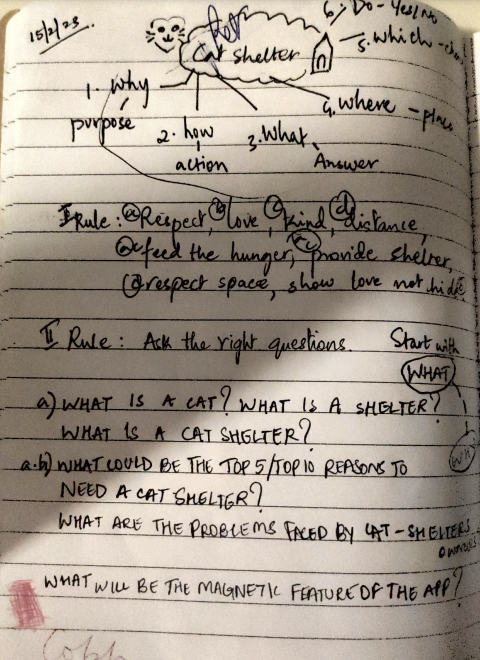 15/2/23
6. Do - Yes/No
Cat shelter
5. which -
1. why
purpose
4. where - place
2. how
action
3. what
Answer
I Rule: (a) Respect, (b) love, (c) kind, (d) distance,
feed the hunger, provide shelter,
(d) respect space, show love not hide
II Rule: Ask the right questions. Start with
WHAT
a) WHAT IS A CAT? WHAT IS A SHELTER?
WHAT IS A CAT SHELTER?
WHY
a.b) WHAT COULD BE THE TOP 5/TOP 10 REASONS TO
NEED A CAT SHELTER?
WHAT ARE THE PROBLEMS FACED BY CAT-SHELTERS
OWNERS
WHAT WILL BE THE MAGNETIC FEATURE OF THE APP?